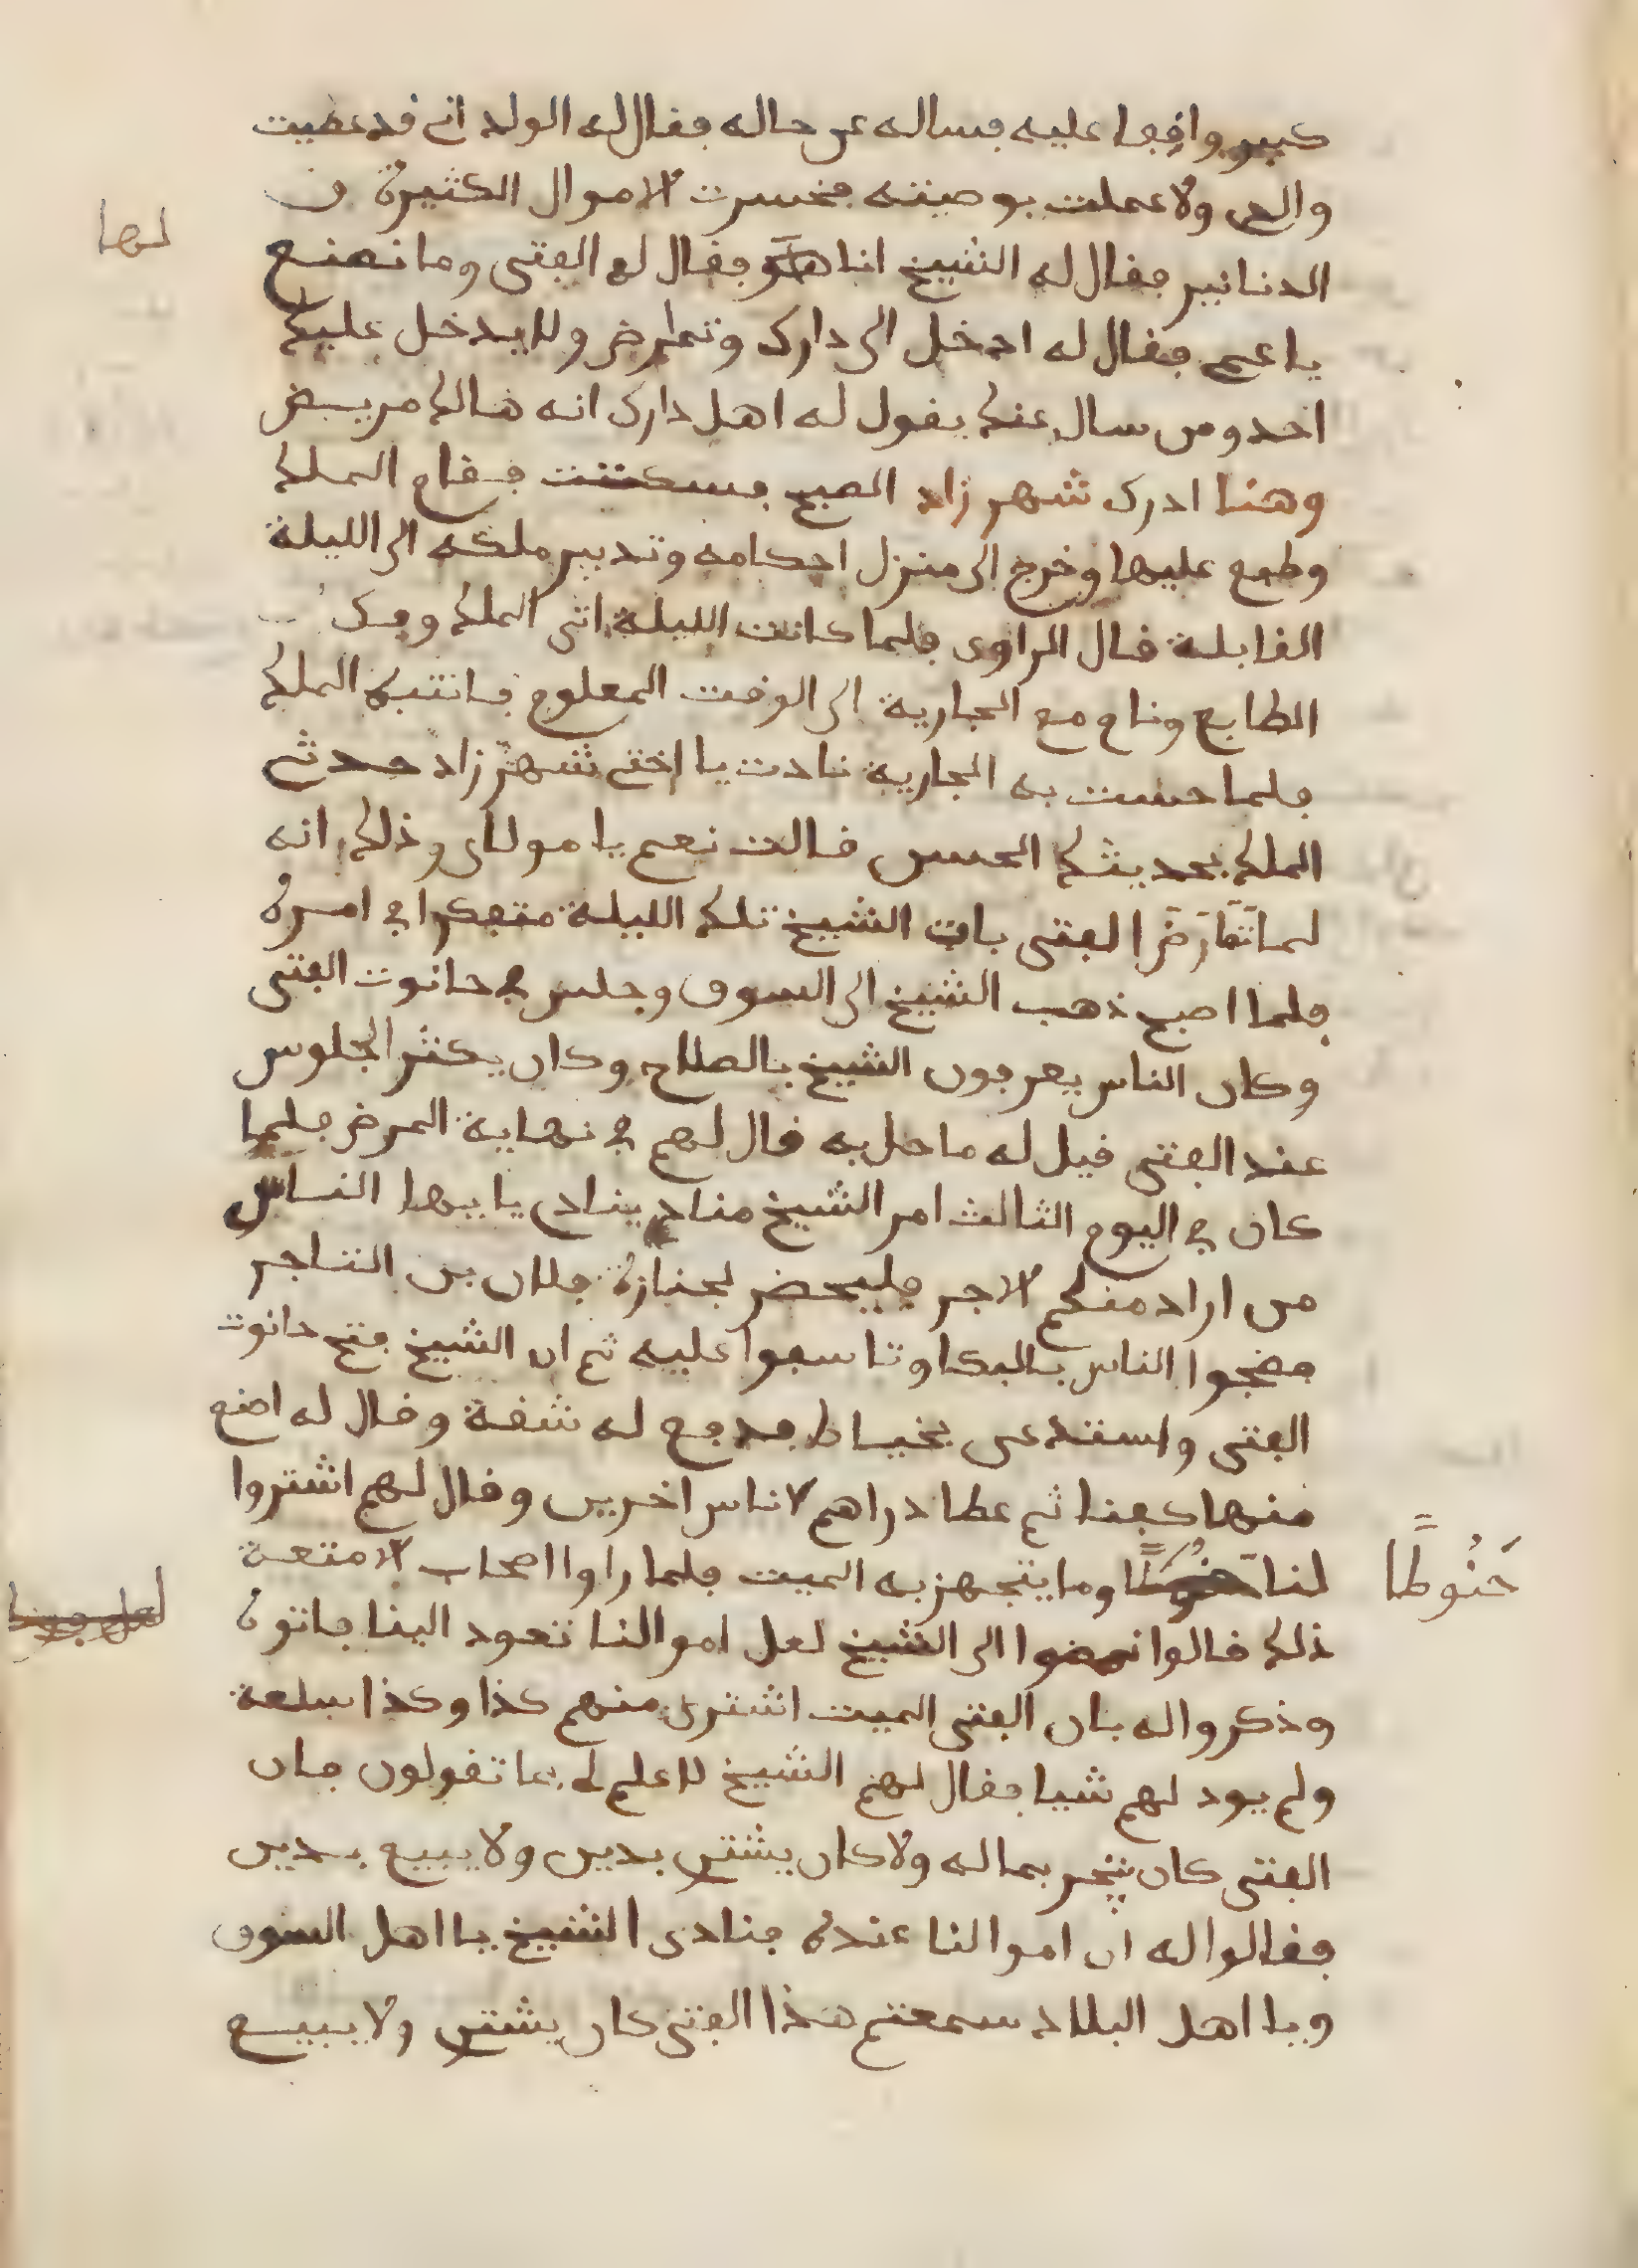 كبير واقفا عليه فساله عن حاله فقال له الولد اني قد عصيت
والدي ولا عملت بوصيته فخسرت الاموال الكثيرة من
لها
الدنانير فقال له الشيخ انا لها فقال له الفتى وما نصنع
يا عم فقال له ادخل الى دارك وتمارض ولا يدخل عليك
احد ومن سال عنك يقول له اهل دارك انه هالك مريض
وهنا ادرك شهرزاد الصبح فسكتت فقام الملك
وطبع عليها وخرج الى منزل احكامه وتدبير ملكه الى الليلة
القابلة قال الراوي فلما كانت الليلة اتى الملك وفك
الطابع ونام مع الجارية الى الوقت المعلوم فانتبه الملك
فلما حست به الجارية نادت يا اختي شهرزاد حدثي
الملك بحديثك الحسن قالت نعم يا مولاي وذلك انه
لما تَمَارَضَ الفتى بات الشيخ تلك الليلة متفكرا في امره
فلما اصبح ذهب الشيخ الى السوق وجلس في حانوت الفتى
وكان الناس يعرفون الشيخ بالصلاح وكان يكثر الجلوس
عند الفتى فيل له ما حل به قال لهم في نهاية المرض فلما
كان في اليوم الثالث امر الشيخ مناد ينادي يا ايها الناس
من اراد منكم الاجر فليحضر لجنازة فلان بن التاجر
فضجوا الناس بالبكا وتاسفوا عليه ثم ان الشيخ فتح حانوت
الفتى واستدعى بخياط فدفع له شقة وقال له اصنع
منها كفنا ثم عطا دراهم لاناس اخرين وقال لهم اشتروا
لنا حنوطًا وما يتجهز به الميت فلما راوا اصحاب الامتعة
حَنُوطًا
ذلك قالوا نمضوا الى الشيخ لعل اموالنا تعود الينا فاتوه
وذكروا له بان الفتى الميت اشترى منهم كذا وكذا سلعة
ولم يود لهم شيا فقال لهم الشيخ لا علم لي بما تقولون فان
الفتى كان يتجر بماله ولا كان يشتري بدين ولا يبيع بدين
فقالوا له ان اموالنا عنده فنادى الشيخ يا اهل السوق
ويا اهل البلاد سمعتم هذا الفتى كان يشتري ولا يبيع